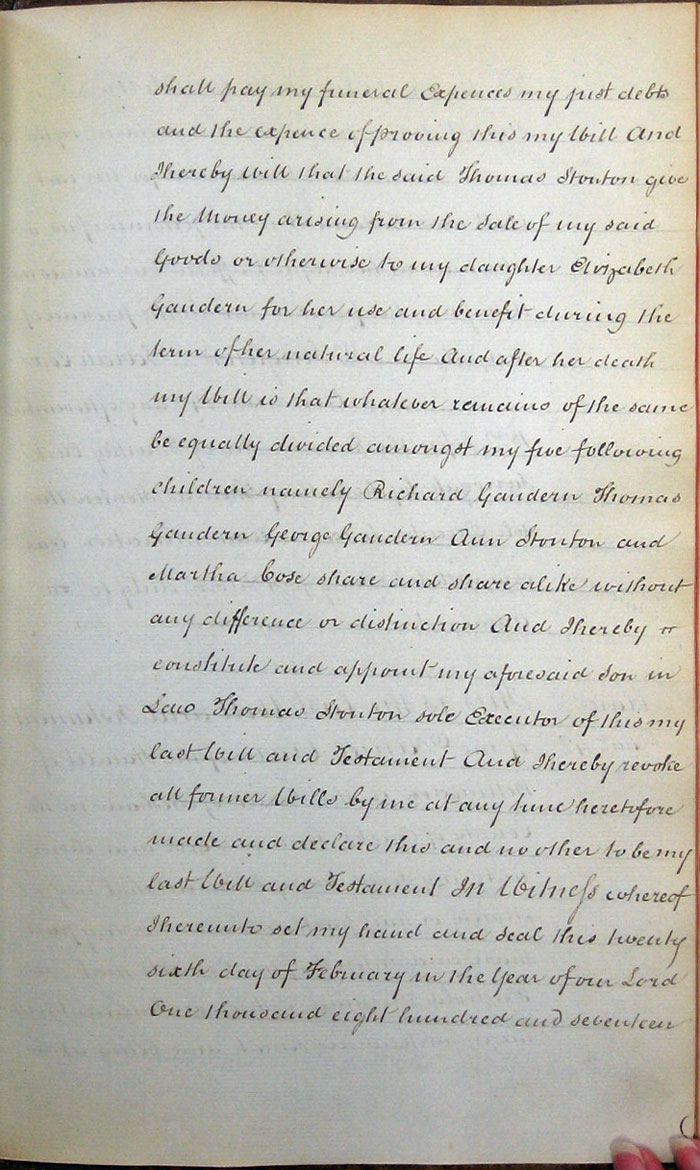 shall pay my funeral Expences my just debts
and the expence of proving this my Will And
I hereby Will that the said Thomas Stonton give
the Money arising from the Sale of my said
Goods or otherwise to my daughter Elizabeth
Gaudern for her use and benefit during the
term of her natural life And after her death
my Will is that whatever remains of the same
be equally divided amongst my five following
children namely Richard Gaudern Thomas
Gaudern George Gaudern Ann Stonton and
Martha Cose share and share alike without
any difference or distinction And I hereby
constitute and appoint my aforesaid Son in
Law Thomas Stonton sole Executor of this my
last Will and Testament And I hereby revoke
all former Wills by me at any time heretofore
made and declare this and no other to be my
last Will and Testament In Witness whereof
I hereunto set my hand and seal this twenty
sixth day of February in the Year of our Lord
One thousand eight hundred and seventeen